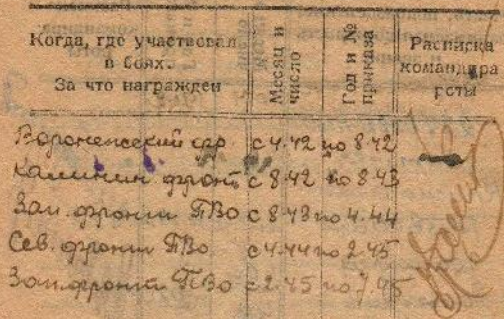 Когда, где участвовал
в боях.
За что награжден
Месяц и
число
Год и №
приказа
Расписка
командира
роты
Воронежский фро с 4.42 по 8.42
Калинин фронт с 8.42 по 8.43
Зап. фронт ПВо с 8.43 по 4.44
Сев. фронт ПВо с 4.44 по 2.45
Зап. фронт ПВо с 2.45 по 7.45